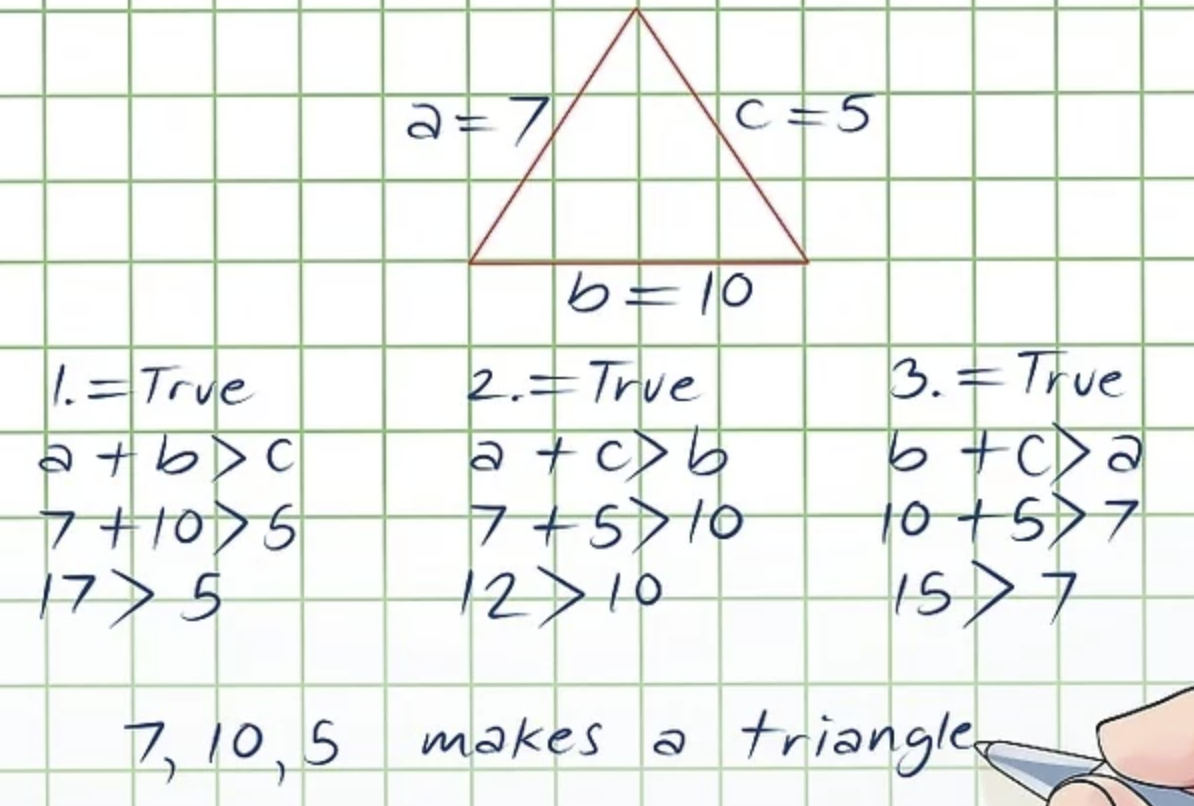 a = 7
c = 5
b = 10
1. = True
a + b > c
7 + 10 > 5
17 > 5
2. = True
a + c > b
7 + 5 > 10
12 > 10
3. = True
b + c > a
10 + 5 > 7
15 > 7
7, 10, 5 makes a triangle